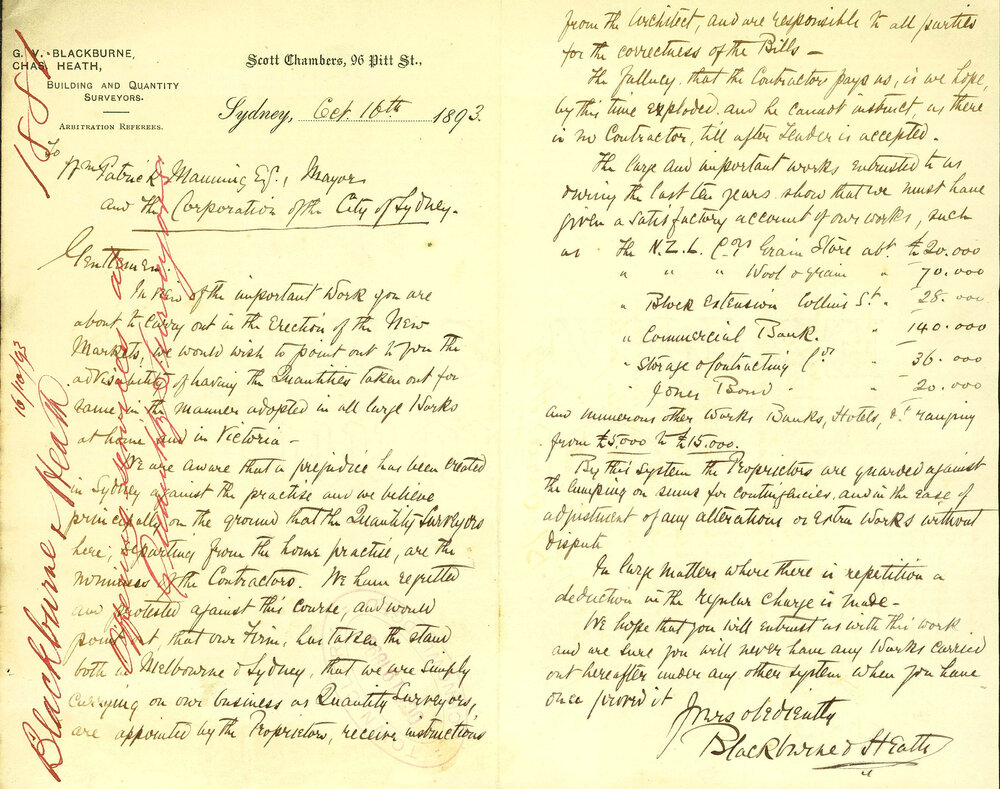 G. V. BLACKBURNE,
CHAS. HEATH,
BUILDING AND QUANTITY
SURVEYORS.
ARBITRATION REFEREES.
Scott Chambers, 96 Pitt St.,
Sydney, Oct. 16th 1893.
To
Wm Patrick Manning Esq., Mayor
and the Corporation of the City of Sydney.
Gentlemen.
In view of the important work you are
about to carry out in the Erection of the New
Markets, we would wish to point out to you the
advisability of having the Quantities taken out for
same in the manner adopted in all large Works
at home and in Victoria —
We are aware that a prejudice has been created
in Sydney against the practise and we believe
principally on the ground that the Quantity Surveyors
here, departing from the home practise, are the
nominees of the Contractors. We have regretted
and protested against this course, and would
point out, that our Firm, has taken the stand
both in Melbourne & Sydney, that we are simply
carrying on our business as Quantity Surveyors,
are appointed by the Proprietors, receive instructions
from the Architect, and are responsible to all parties
for the correctness of the Bills —
The fallacy, that the Contractor pays us, is we hope,
by this time exploded, and he cannot instruct, as there
is no Contractor, till after Tender is accepted.
The large and important works entrusted to us
during the last ten years show that we must have
given a satisfactory account of our works, such
as The N.Z.L. Coys Grain Store abt. £20.000
" " " Wool & Grain " 70.000
" Block Extension Collins St. " 28.000
" Commercial Bank. " 140.000
" Storage & Contracting Coy " 36.000
" Jones Bond " 20.000
and numerous other Works Banks, Hotels, &c ranging
from £5000 to £15.000.
By this system the Proprietors are guarded against
the lumping on sums for contingencies, and in the ease of
adjustment of any alterations or Extra Works without
dispute
In large matters where there is repetition a
deduction in the regular charge is made —
We hope that you will entrust us with this work
and are sure you will never have any Works carried
out hereafter under any other system when you have
once proved it
Yours obediently
Blackburne & Heath
1881
16/10/93
Blackburne & Heath
Offering services as
Quantity Surveyors